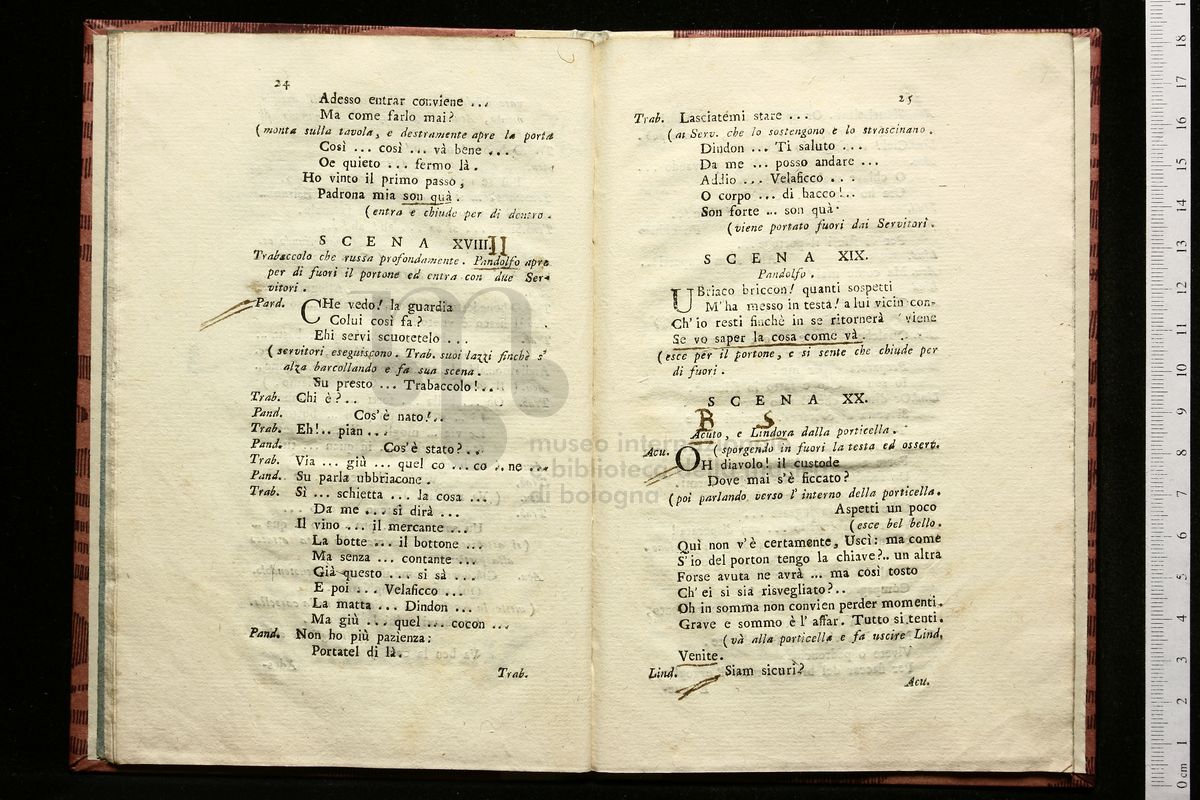 24
Adesso entrar conviene ...
Ma come farlo mai?
(monta sulla tavola, e destramente apre la porta
Così ... così ... và bene ....
Oe quieto ... fermo là.
Ho vinto il primo passo,
Padrona mia son quà.
(entra e chiude per di dentro.
SCENA XVIII.
Trabaccolo che russa profondamente. Pandolfo apre
per di fuori il portone ed entra con due Ser-
vitori.
Pand. CHe vedo! la guardia
Colui così fa?
Ehi servi scuotetelo ...
(servitori eseguiscono. Trab. suoi lazzi finchè s'
alza barcollando e fa sua scena.
Su presto ... Trabaccolo!...
Trab. Chi è?..
Pand. Cos'è nato!..
Trab. Eh!.. pian ...
Pand. Cos'è stato?..
Trab. Via ... giù ... quel co ... co .. ne ...
Pand. Su parla ubbriacone.
Trab. Sì ... schietta ... la cosa ...
Da me ... si dirà ...
Il vino ... il mercante ...
La botte ... il bottone ...
Ma senza ... contante ...
Già questo ... si sà ...
E poi ... Velaficco ...
La matta ... Dindon ...
Ma giù ... quel ... cocon ...
Pand. Non ho più pazienza:
Portatel di là.
Trab.
25
Trab. Lasciatemi stare ...
(ai Serv. che lo sostengono e lo strascinano.
Dindon ... Ti saluto ...
Da me ... posso andare ...
Addio ... Velaficco ...
O corpo ... di bacco!..
Son forte ... son quà.
(viene portato fuori dai Servitori.
SCENA XIX.
Pandolfo.
UBriaco briccon! quanti sospetti
M'ha messo in testa! a lui vicin con-
Ch'io resti finchè in se ritornerà (viene
Se vo saper la cosa come và.
(esce per il portone, e si sente che chiude per
di fuori.
SCENA XX.
B S
Acuto, e Lindora dalla porticella.
Acu. (sporgendo in fuori la testa ed osserv.
OH diavolo! il custode
Dove mai s'è ficcato?
(poi parlando verso l'interno della porticella.
Aspetti un poco
(esce bel bello.
Quì non v'è certamente, Uscì: ma come
S'io del porton tengo la chiave?.. un altra
Forse avuta ne avrà ... ma così tosto
Ch'ei si sia risvegliato?..
Oh in somma non convien perder momenti.
Grave e sommo è l'affar. Tutto si tenti.
(và alla porticella e fa uscire Lind.
Venite.
Lind. Siam sicurì?
Acu.
museo internazionale
e biblioteca della musica
di bologna